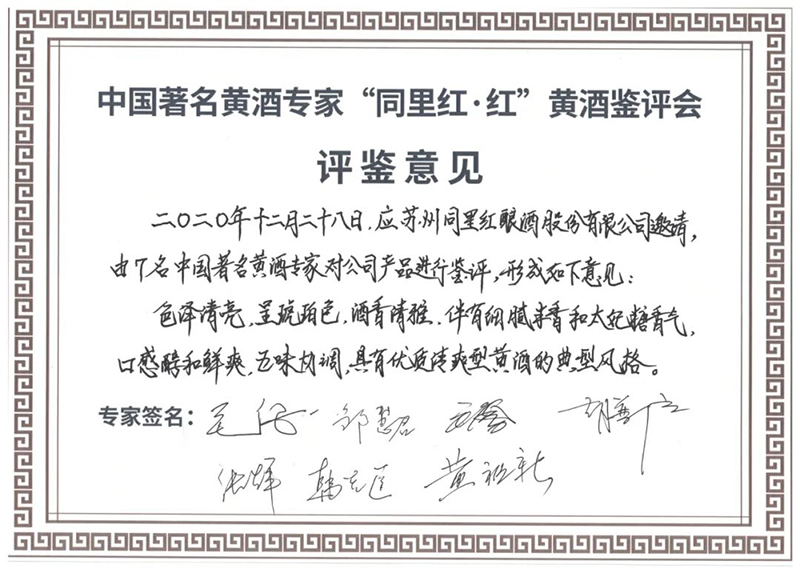 中国著名黄酒专家“同里红·红”黄酒鉴评会
评鉴意见
二〇二〇年十二月二十八日,应苏州同里红酿酒股份有限公司邀请,
由7名中国著名黄酒专家对公司产品进行鉴评,形成如下意见:
色泽清亮,呈琥珀色,酒香清雅,伴有细腻米香和太妃糖香气,
口感醇和鲜爽,五味协调,具有优质清爽型黄酒的典型风格。
专家签名: